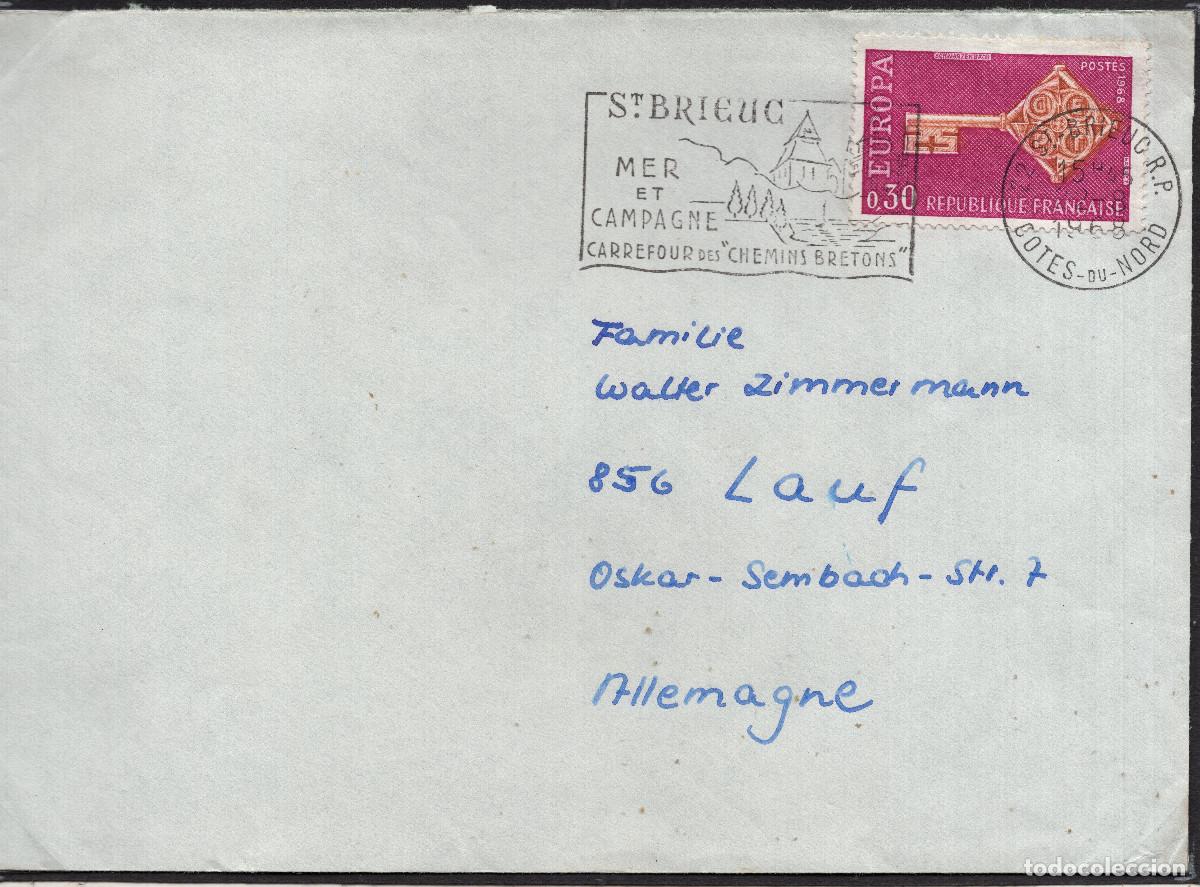 SCHWARZENBACH
POSTES 1968
EUROPA
0,30 REPUBLIQUE FRANÇAISE
ST BRIEUC
MER
ET
CAMPAGNE
CARREFOUR DES "CHEMINS BRETONS"
22 ST-BRIEUC R.P.
15 H
1968
COTES-DU-NORD
Familie
Walter Zimmermann
856 Lauf
Oskar-Sembach-Str. 7
Allemagne
todocoleccion